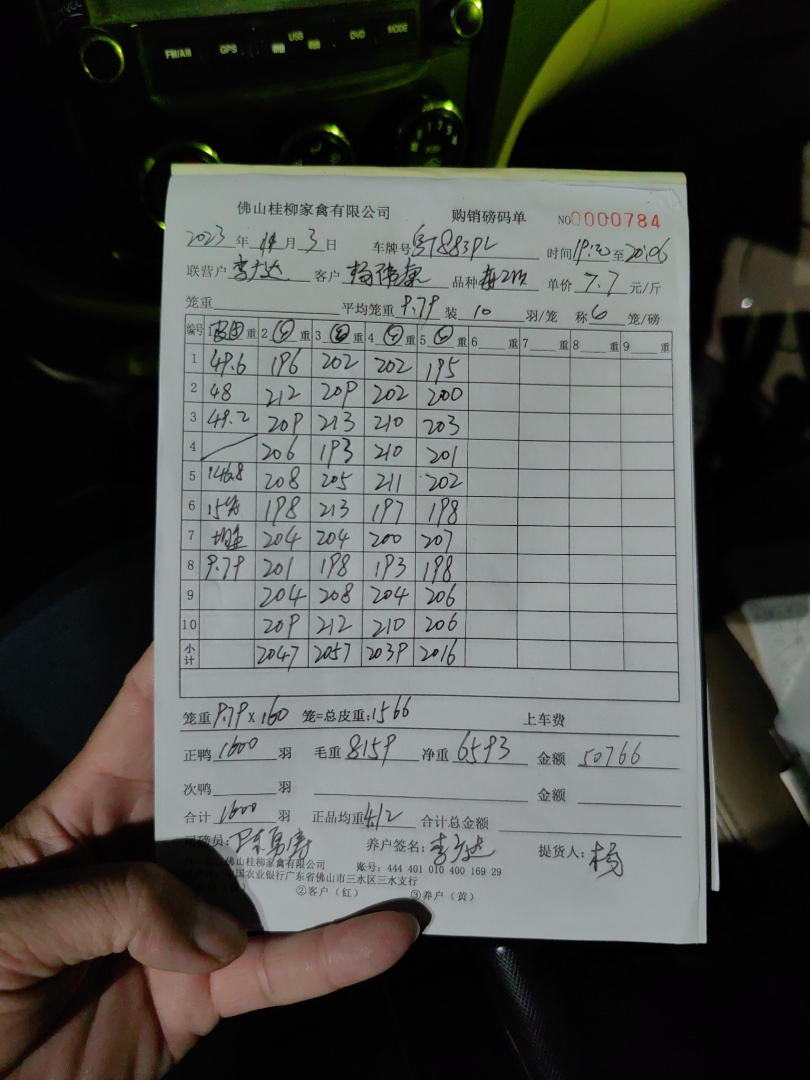 FM/AM GPS USB DVD MODE
佛山桂柳家禽有限公司 购销磅码单 NO 0000784
2023 年 11 月 3 日 车牌号 时间 至 20:06
联营户 李广达 客户 杨伟康 品种 单价 7.7 元/斤
笼重 平均笼重 9.79 装 10 羽/笼 称 6 笼/磅
编号 1 皮 重 2 重 3 重 4 重 5 重 6 重 7 重 8 重 9 重
1 49.6 196 202 202 195
2 48 212 209 202 200
3 49.2 209 213 210 203
4 206 193 210 201
5 146.8 208 205 211 202
6 15笼 198 213 197 198
7 均重 204 204 200 207
8 9.79 201 198 193 198
9 204 208 204 206
10 209 212 210 206
小计 2047 2057 2039 2016
笼重 9.79 X 160 笼=总皮重:1566 上车费
正鸭 1600 羽 毛重 8159 净重 6593 金额 50766
次鸭 羽 金额
合计 1600 羽 正品均重 4.12 合计总金额
司磅员: 养户签名: 李广达 提货人: 杨
佛山桂柳家禽有限公司 账号: 444 401 010 400 169 29
国农业银行广东省佛山市三水区三水支行
②客户(红) ③养户(黄)